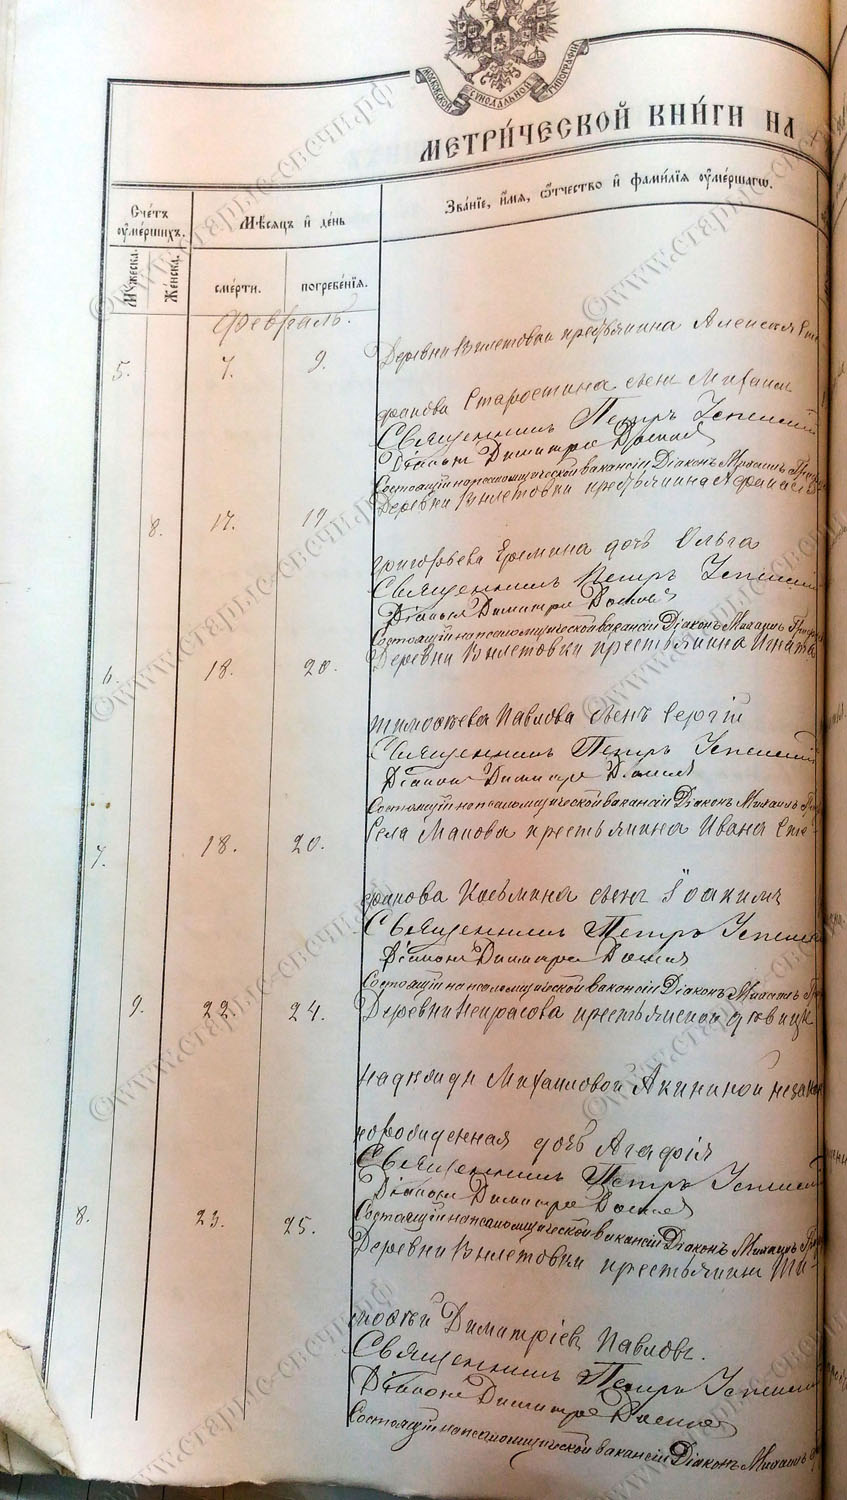 МОСКОВСКОЙ СѴНОДАЛЬНОЙ ТИПОГРАФІИ
МЕТРИ́ЧЕСКОЙ КНИ́ГИ НА
Счетъ оумершихъ.
Мѣсяцъ и день
Званіе, имя, отчество и фамилія оумершаго.
Мужеска.
Женска.
смерти.
погребенія.
Февраль.
5. 7. 9. Деревни Вылетовки крестьянина Алексѣя Сте
фанова Старостина сынъ Михаилъ
Священникъ Петръ Успенскій
Діаконъ Димитрій
Состоящій на псаломщической вакансіи Діаконъ Михаилъ
8. 17. 19. Деревни Вылетовки крестьянина Афанасія
Григорьева Еремина дочь Ольга
Священникъ Петръ Успенскій
Діаконъ Димитрій
Состоящій на псаломщической вакансіи Діаконъ Михаилъ
6. 18. 20. Деревни Вылетовки крестьянина Игната
Тимофеева Павлова сынъ Сергій
Священникъ Петръ Успенскій
Діаконъ Димитрій
Состоящій на псаломщической вакансіи Діаконъ Михаилъ
7. 18. 20. Села Макова крестьянина Ивана Сте
фанова Козьмина сынъ Іоакимъ
Священникъ Петръ Успенскій
Діаконъ Димитрій
Состоящій на псаломщической вакансіи Діаконъ Михаилъ
9. 22. 24. Деревни Некрасова крестьянской дѣвицы
Надежды Михаиловой Акининой незакон
норожденная дочь Агафія
Священникъ Петръ Успенскій
Діаконъ Димитрій
Состоящій на псаломщической вакансіи Діаконъ Михаилъ
8. 23. 25. Деревни Вылетовки крестьянинъ Ти-
мофей Димитріевъ Павловъ.
Священникъ Петръ Успенскій
Діаконъ Димитрій
Состоящій на псаломщической вакансіи Діаконъ Михаилъ
©www.старые-свечи.рф